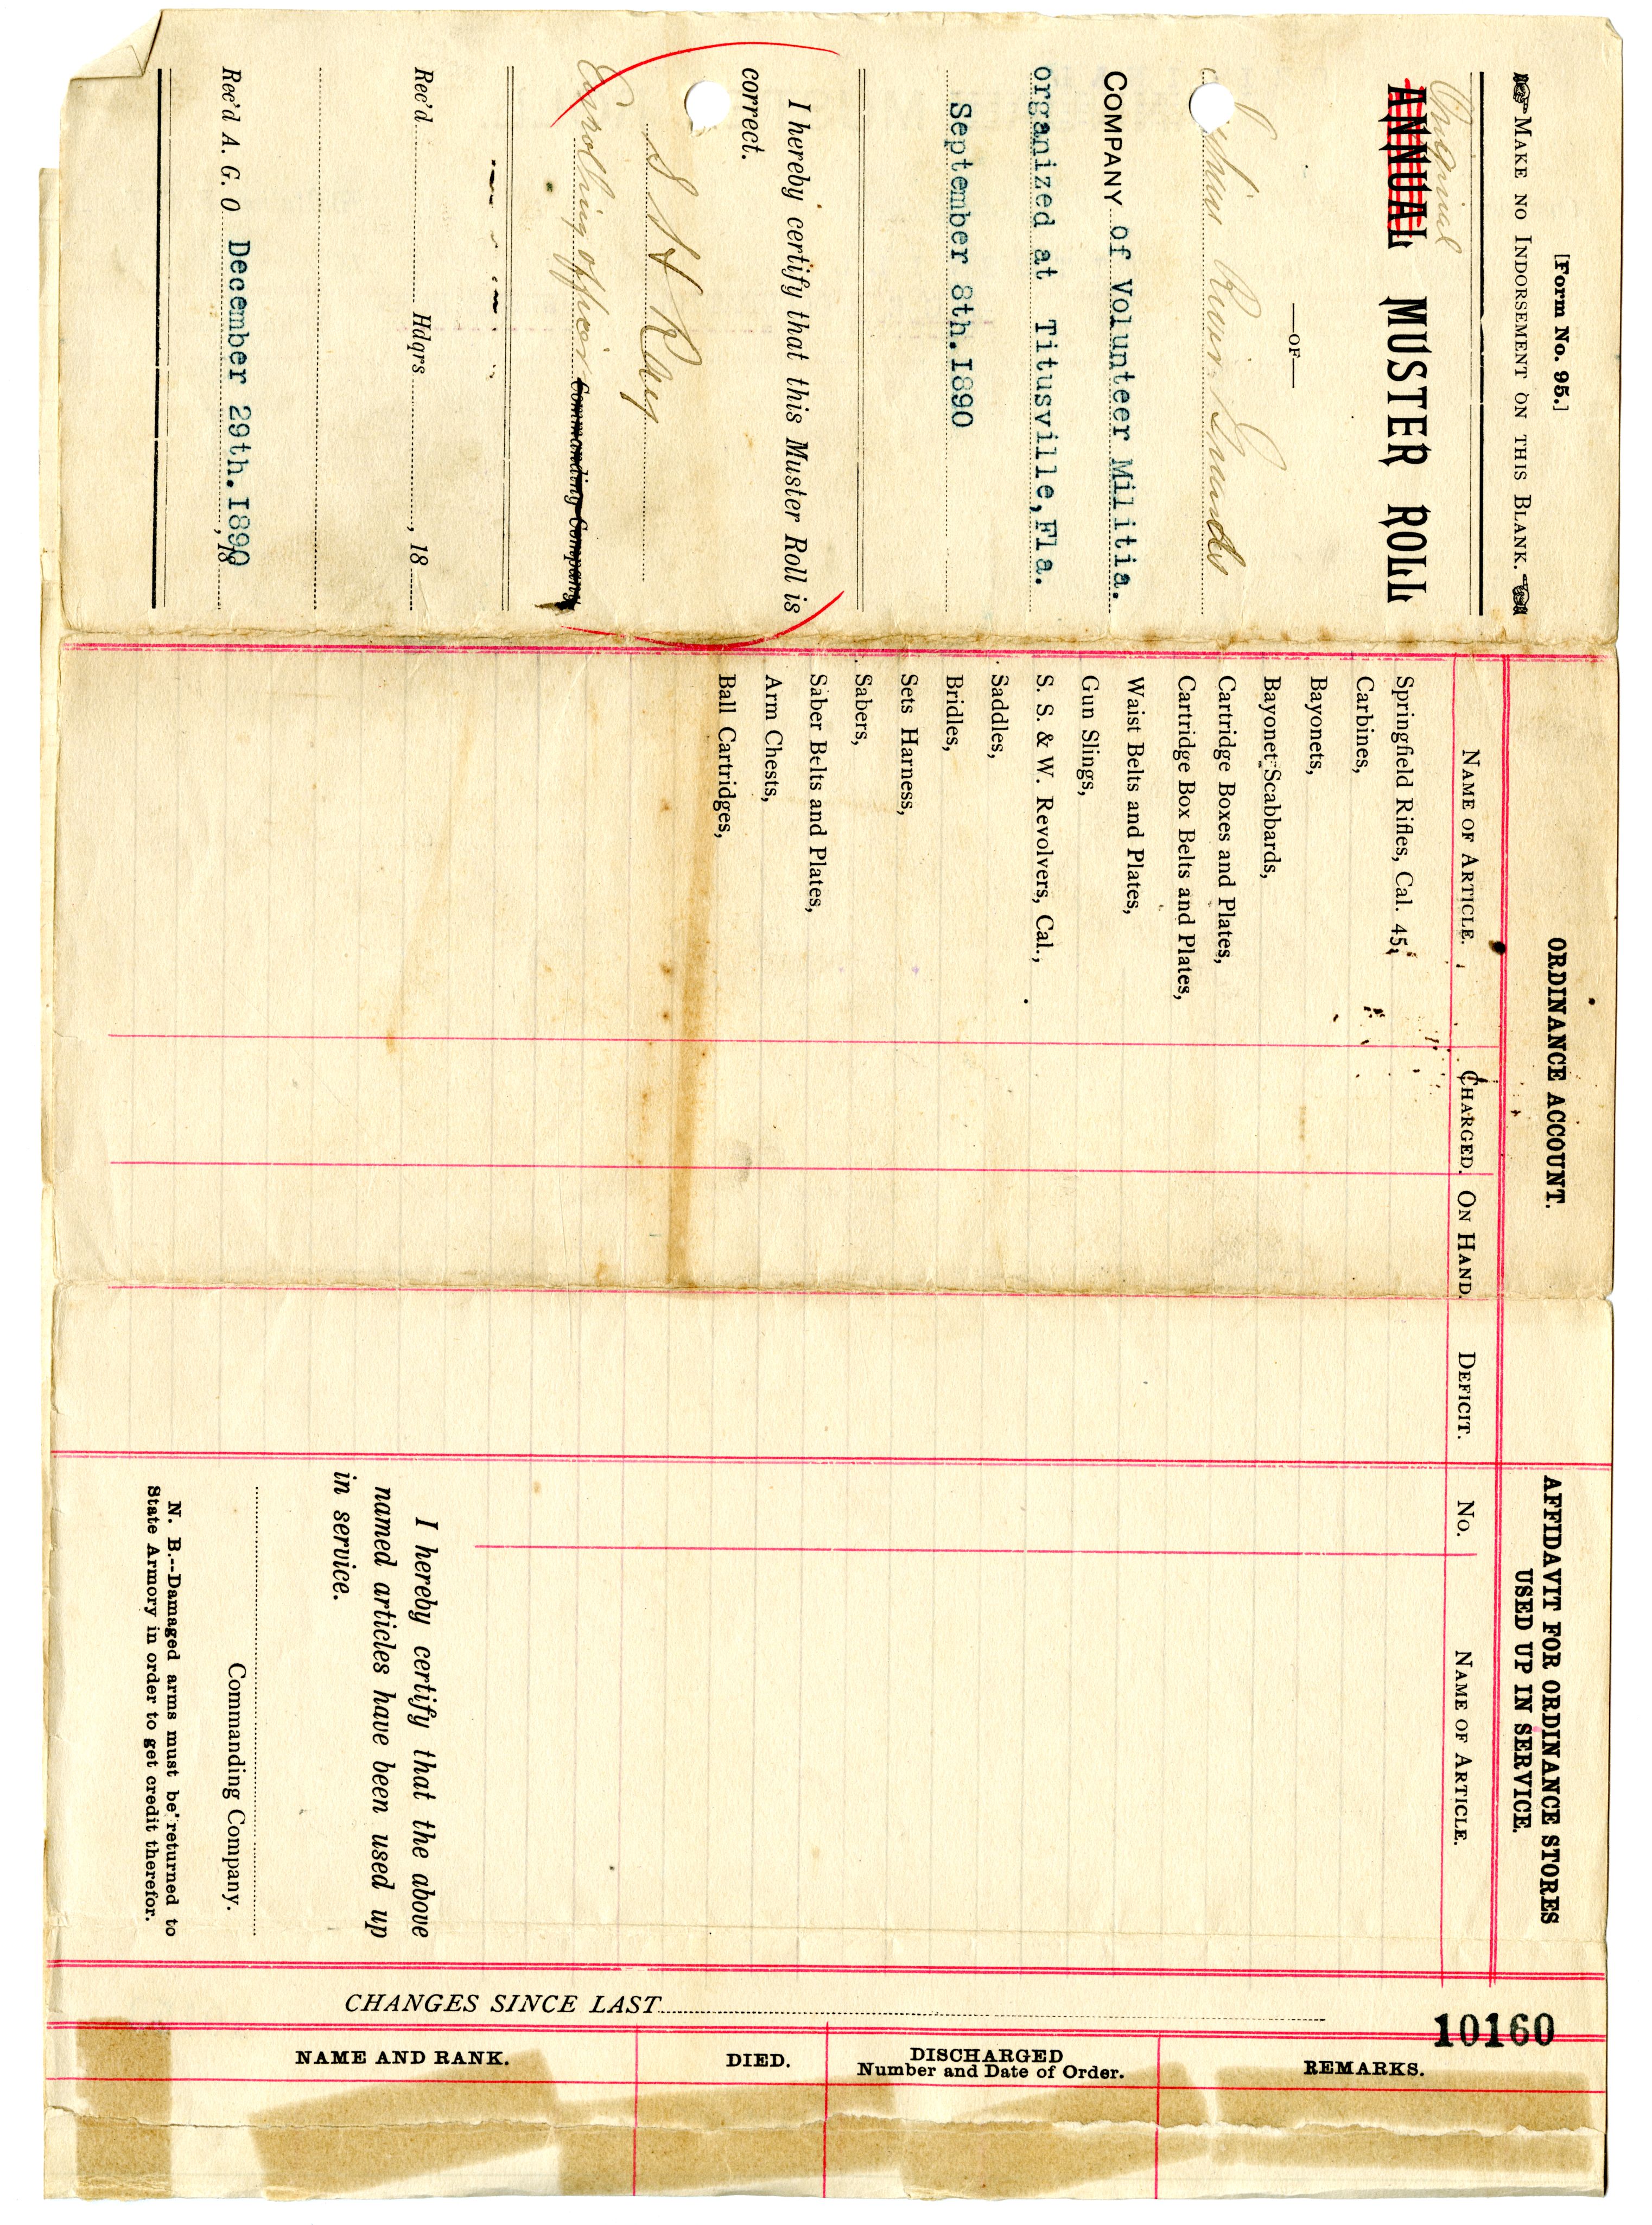 [Form No. 95.]
MAKE NO INDORSEMENT ON THIS BLANK.
Original
ANNUAL MUSTER ROLL
—OF—
Indian River Guards
COMPANY of Volunteer Militia.
organized at Titusville,Fla.
September 8th.1890
I hereby certify that this Muster Roll is
correct.
Enrolling officer Commanding Company
Rec'd Hdqrs , 18
Rec'd A. G. O December 29th.1890 , 18
ORDINANCE ACCOUNT.
NAME OF ARTICLE. CHARGED. ON HAND. DEFICIT.
Springfield Rifles, Cal. 45,
Carbines,
Bayonets,
Bayonet Scabbards,
Cartridge Boxes and Plates,
Cartridge Box Belts and Plates,
Waist Belts and Plates,
Gun Slings,
S. S. & W. Revolvers, Cal.,
Saddles,
Bridles,
Sets Harness,
Sabers,
Saber Belts and Plates,
Arm Chests,
Ball Cartridges,
AFFIDAVIT FOR ORDINANCE STORES
USED UP IN SERVICE.
No. NAME OF ARTICLE.
I hereby certify that the above
named articles have been used up
in service.
Commanding Company.
N. B.--Damaged arms must be returned to
State Armory in order to get credit therefor.
CHANGES SINCE LAST
10160
NAME AND RANK. DIED. DISCHARGED REMARKS.
Number and Date of Order.